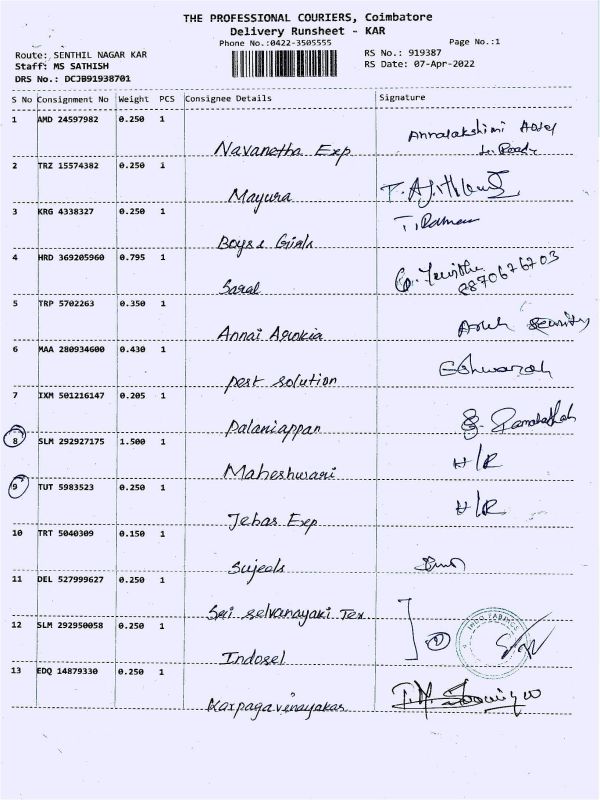 THE PROFESSIONAL COURIERS, Coimbatore
Delivery Runsheet - KAR
Phone No.:0422-3505555 Page No.:1
Route: SENTHIL NAGAR KAR RS No.: 919387
Staff: MS SATHISH RS Date: 07-Apr-2022
DRS No.: DCJB91938701
S No Consignment No Weight PCS Consignee Details Signature
1 AMD 24597982 0.250 1
Navanetha Exp
2 TRZ 15574382 0.250 1
Mayura
3 KRG 4338327 0.250 1
Boys & Girls
4 HRD 369205960 0.795 1
Saral 8870676703
5 TRP 5702263 0.350 1
Annai
6 MAA 280934600 0.430 1
pest solution
7 IXM 501216147 0.205 1
Palaniappan
8 SLM 292927175 1.500 1 H/R
Maheshwari
9 TUT 5983523 0.250 1 H/R
Jebas Exp
10 TRT 5040309 0.150 1
Sujeels
11 DEL 527999627 0.250 1
Sri selvanayaki Tex
12 SLM 292950058 0.250 1 2
Indosel
13 EDQ 14879330 0.250 1
Karpagavinayakas